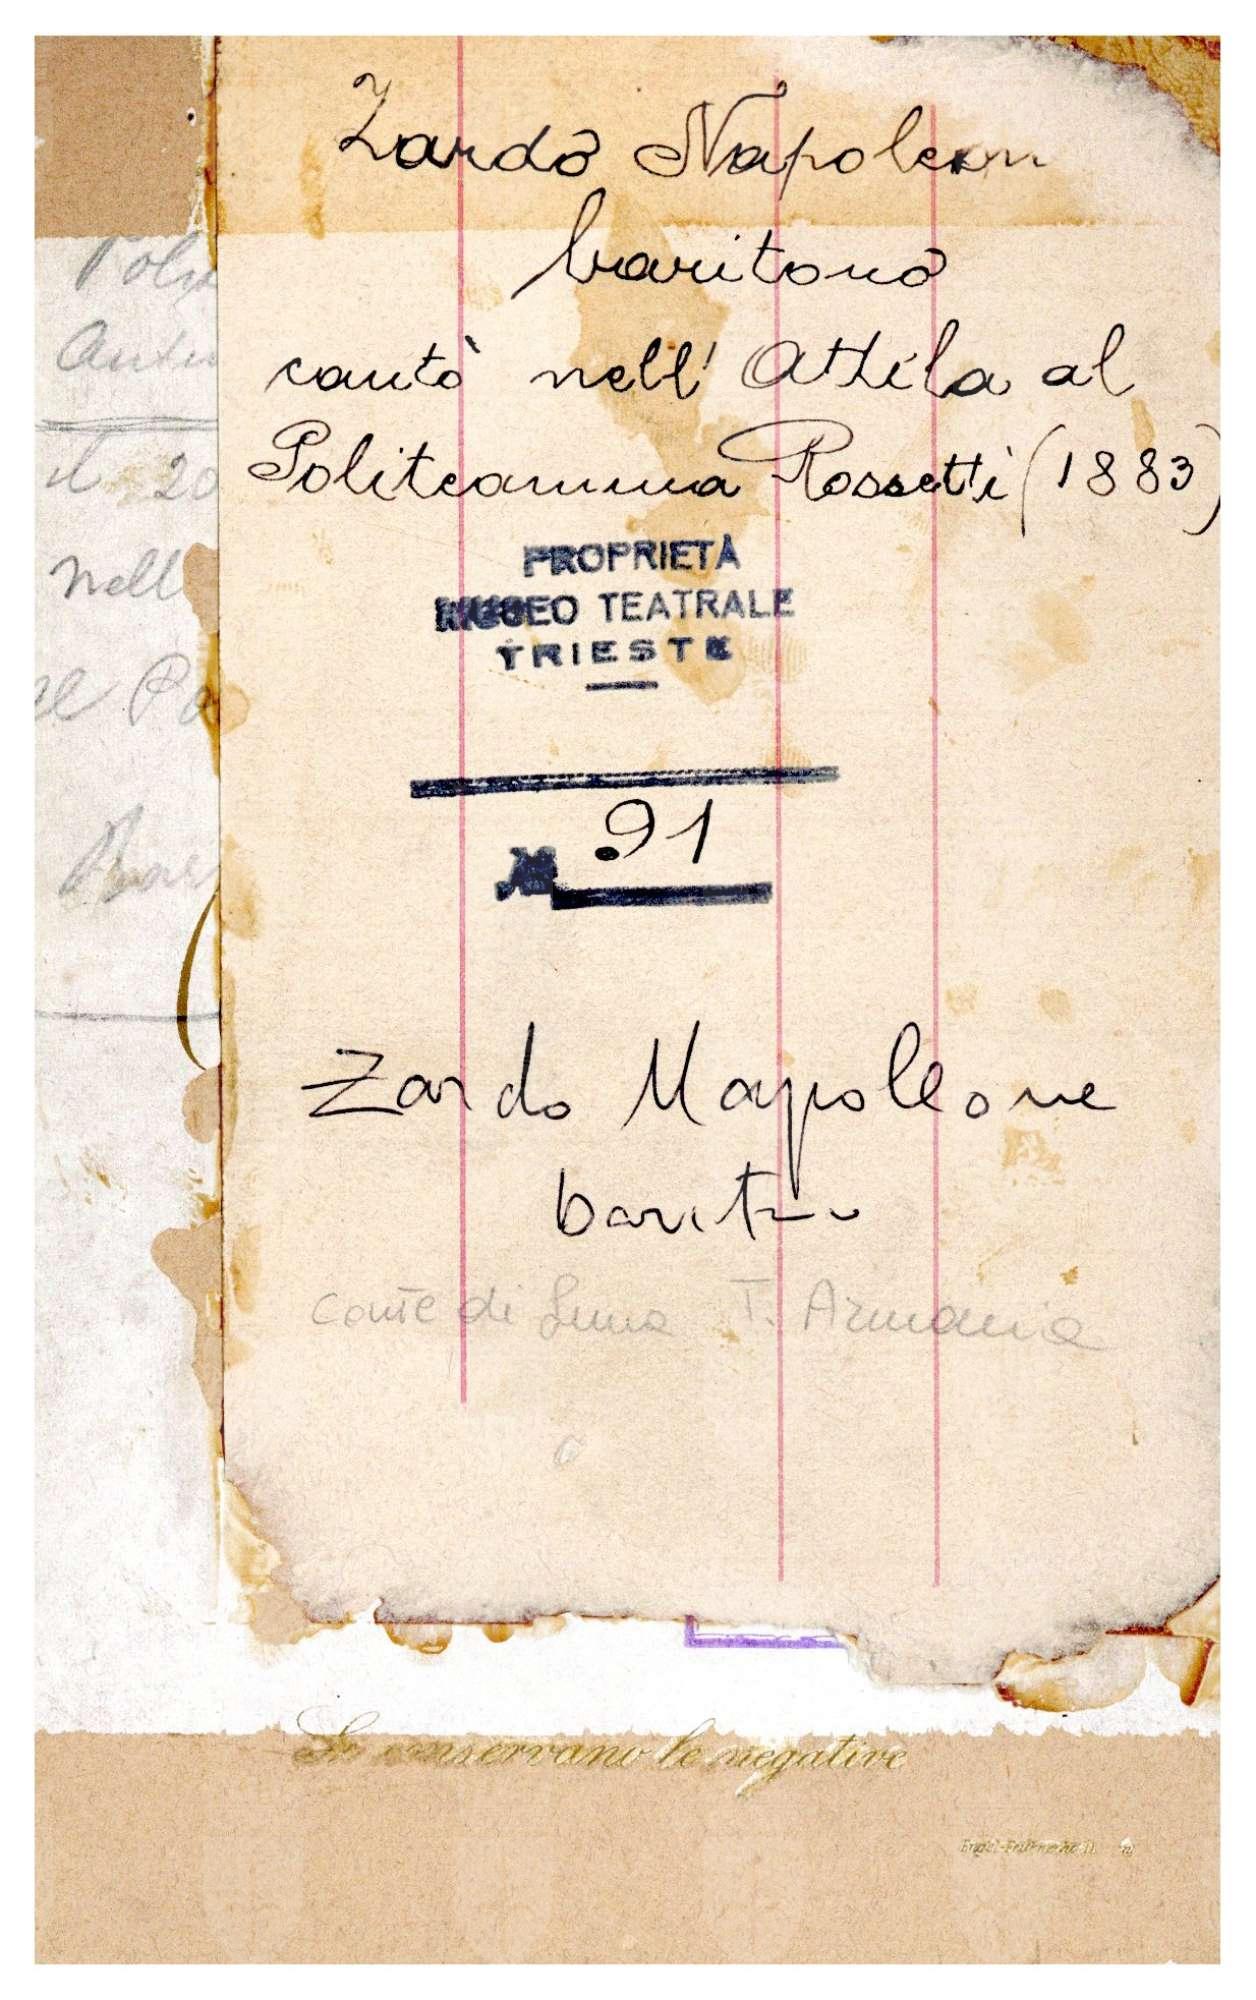 Zardo Napoleon
baritono
cantò nell' Attila al
Politeamma Rossetti (1883)
PROPRIETÀ
MUSEO TEATRALE
TRIESTE
91
Zardo Napoleone
baritono
conte di Luna T. Armonia
il 20
nell
al Po
Si conservano le negative